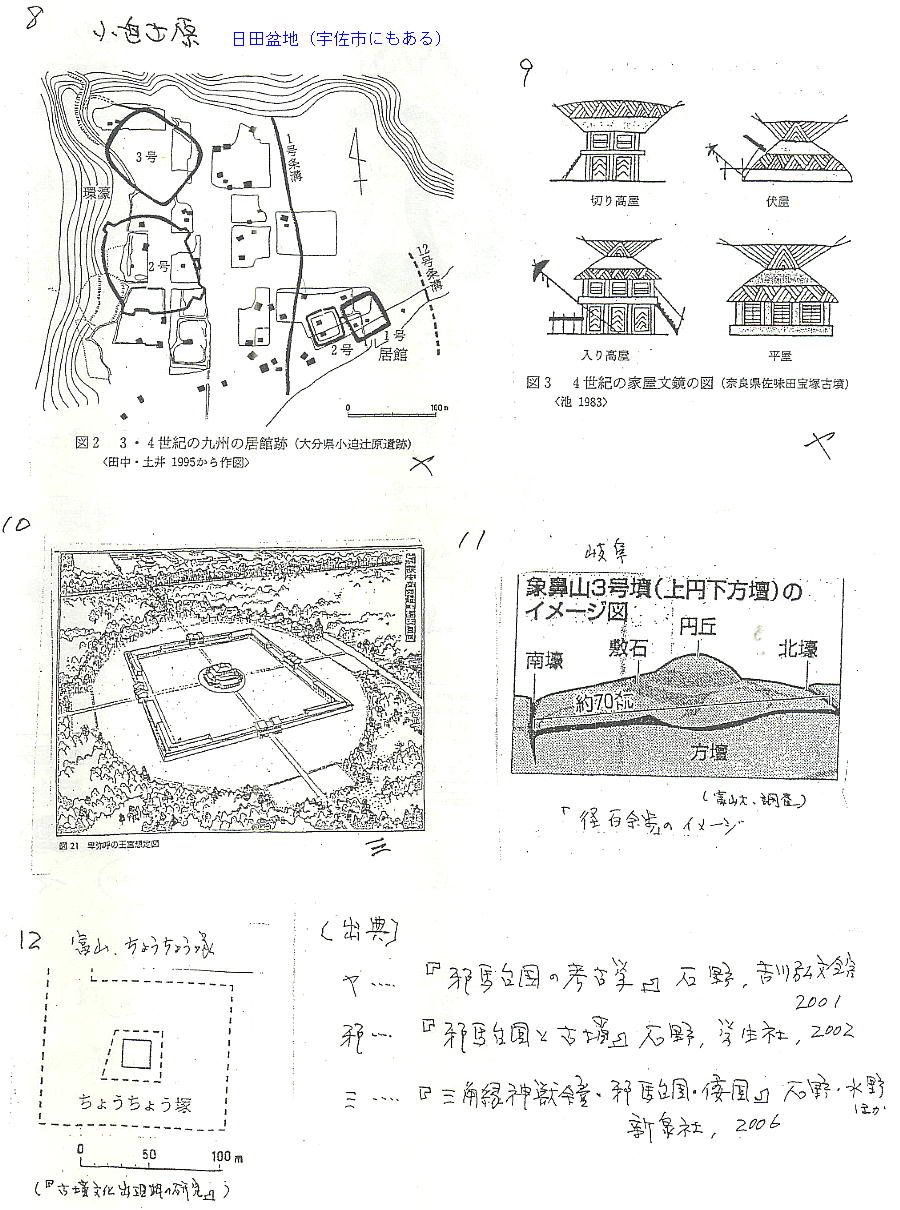 8
小迫辻原 日田盆地（宇佐市にもある）
3号
環濠
1号条溝
2号
12号条溝
2号
1号
居館
0 100m
図2 3・4世紀の九州の居館跡（大分県小迫辻原遺跡）
〈田中・土井 1995から作図〉
ヤ
9
切り高屋
伏屋
入り高屋
平屋
図3 4世紀の家屋文鏡の図（奈良県佐味田宝塚古墳）
〈池 1983〉
ヤ
10
図21 卑弥呼の王宮想定図
三
11
岐阜
象鼻山3号墳（上円下方壇）の
イメージ図
円丘
敷石
北壕
南壕
約70メートル
方壇
（富山大、調査）
「径百余歩」のイメージ
12 富山、ちょうちょう塚
ちょうちょう塚
0 50 100m
（『古墳文化出現期の研究』）
〔出典〕
ヤ…… 『邪馬台国の考古学』 石野，吉川弘文館
2001
邪… 『邪馬台国と古墳』石野，学生社，2002
三…… 『三角縁神獣鏡・邪馬台国・倭国』 石野・水野
ほか
新泉社，2006